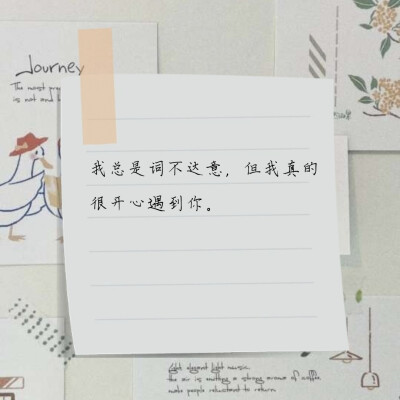 Journey
The most
is not and
我总是词不达意，但我真的
很开心遇到你。
elegant light music
the air is emitting a strong aroma of coffee
make people reluctant to return